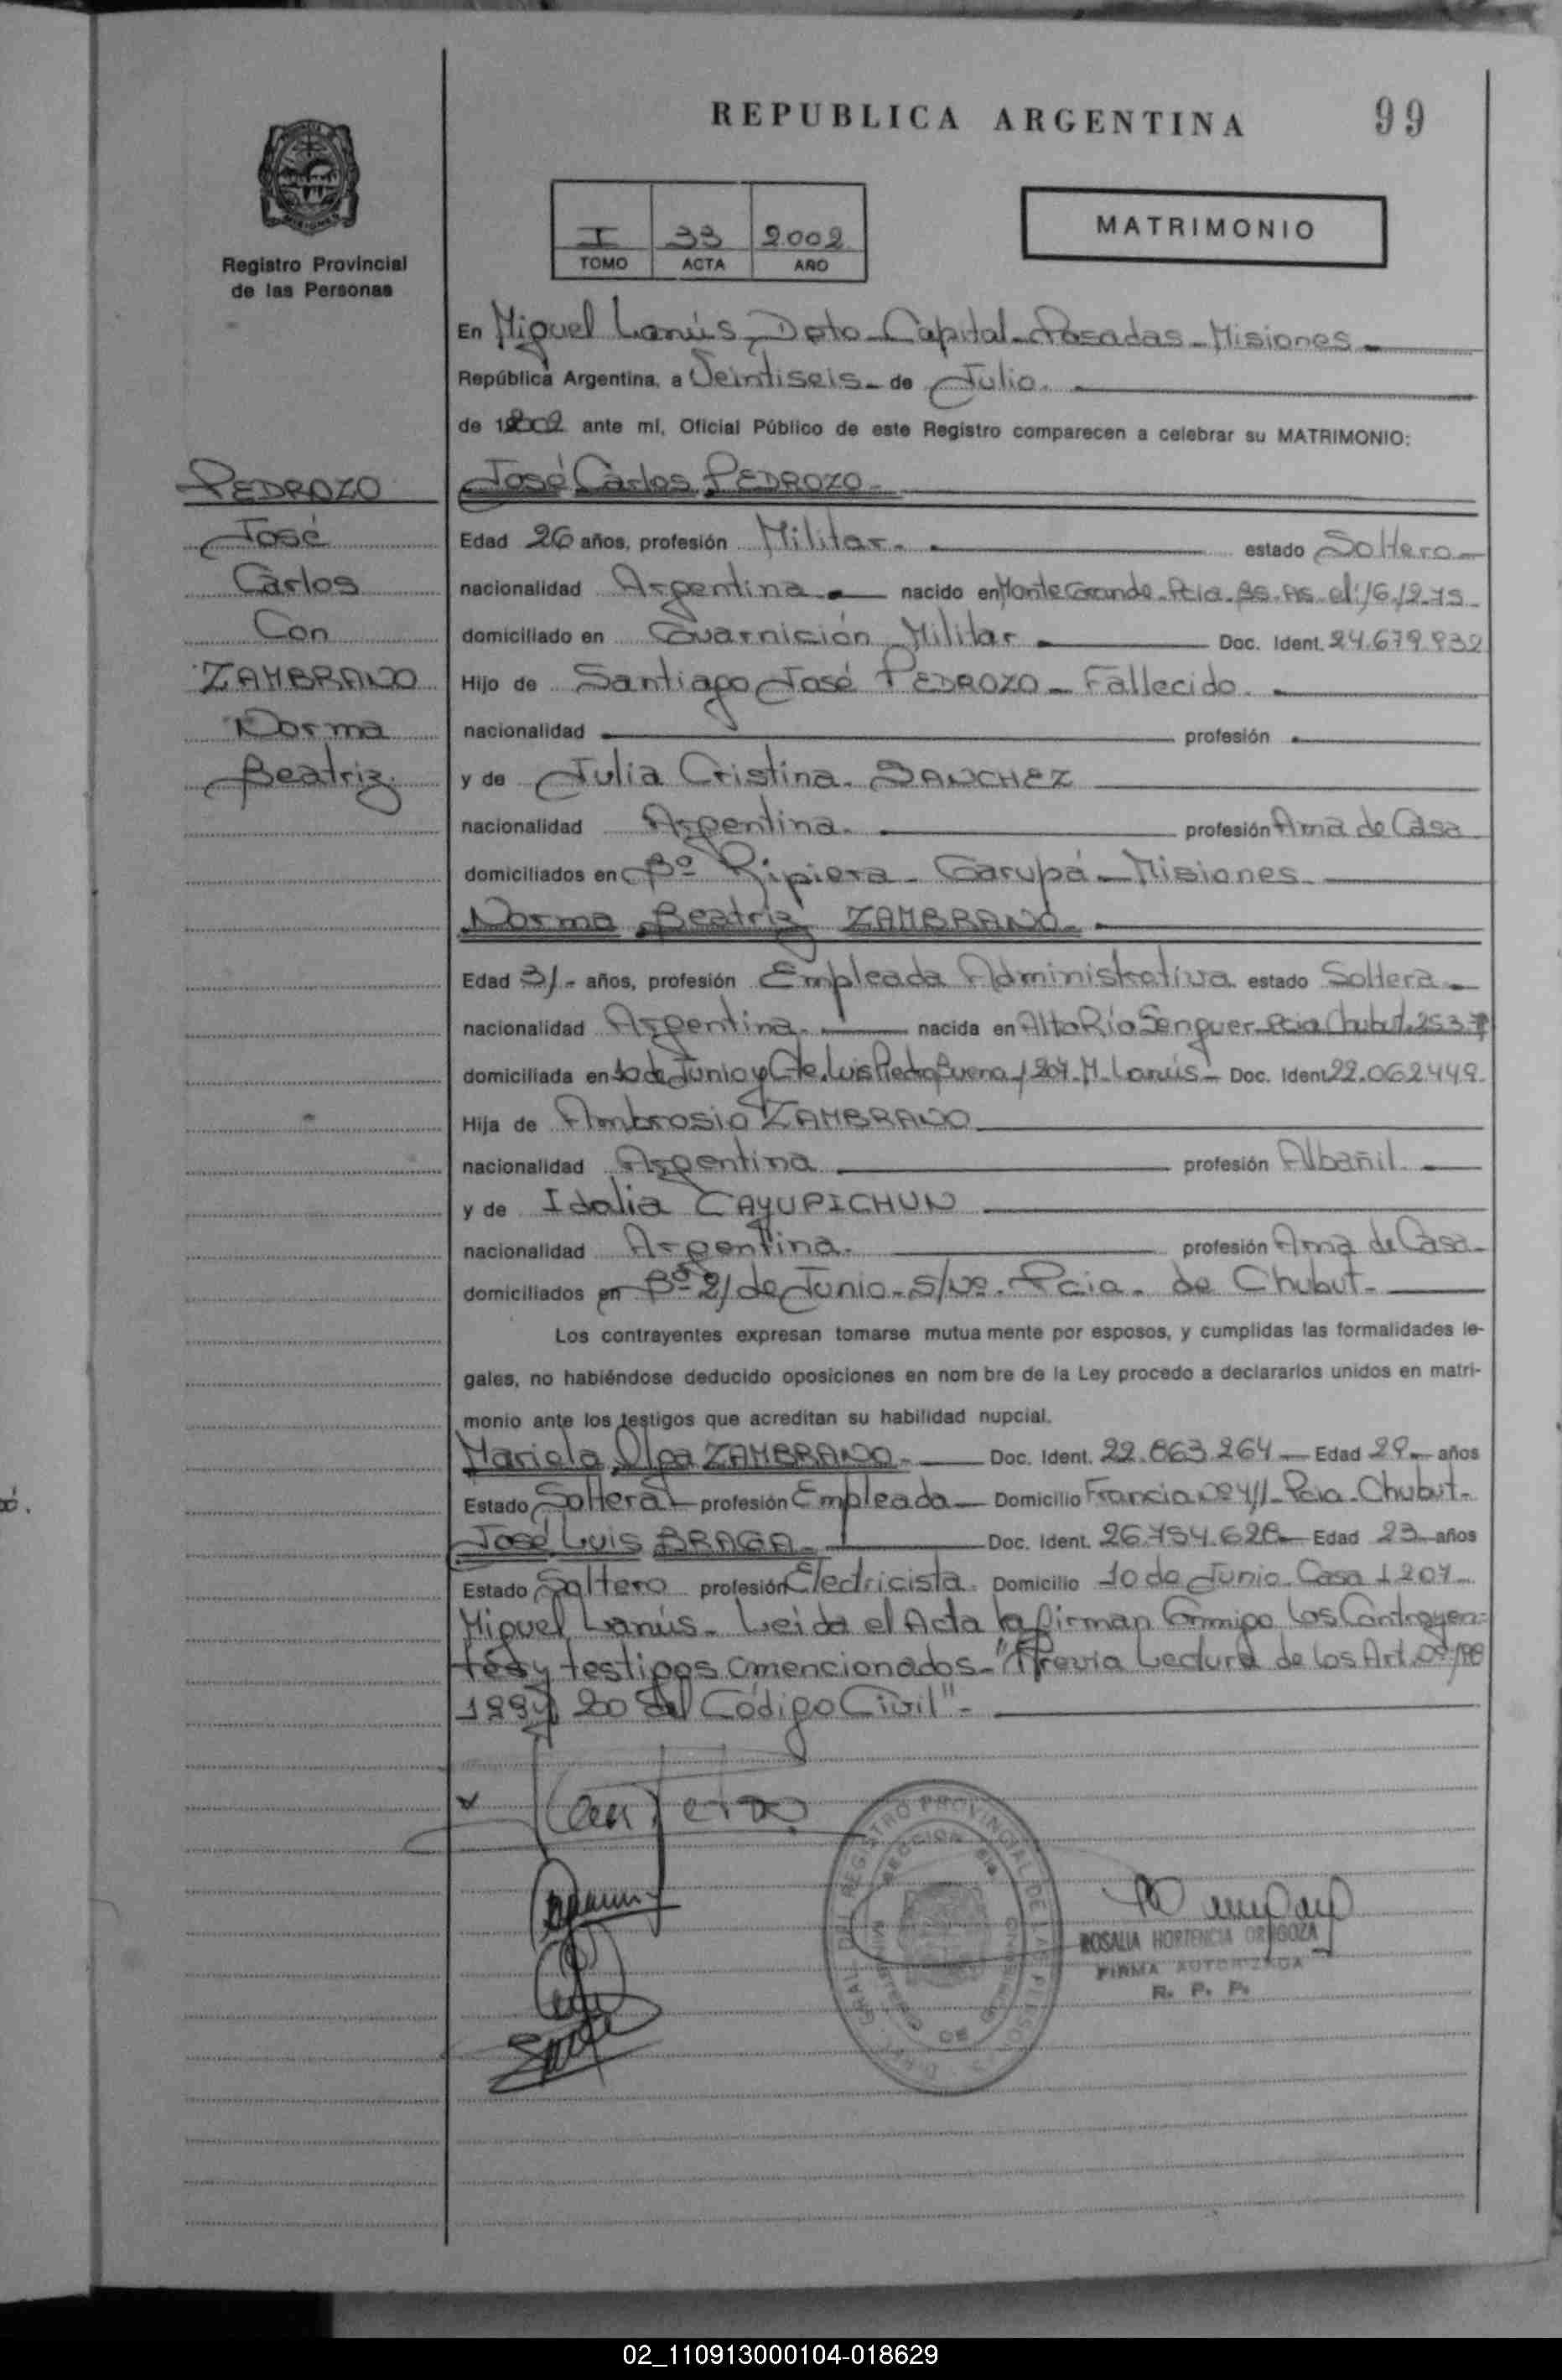 REPUBLICA ARGENTINA 99
Registro Provincial
de las Personas
I 33 2.002
TOMO ACTA AÑO
MATRIMONIO
En Miguel Lanús, Dpto Capital - Posadas - Misiones
República Argentina, a Veintiseis - de Julio.
de 2002 ante mi, Oficial Público de este Registro comparecen a celebrar su MATRIMONIO:
PEDROZO
José
Carlos
Con
ZAMBRANO
Norma
Beatriz.
José Carlos PEDROZO -
Edad 26 años, profesión Militar. estado Soltero
nacionalidad Argentina nacido en Monte Grande - Pcia. Bs. As. el
domiciliado en Guarnición Militar Doc. Ident. 24.679.932
Hijo de Santiago José PEDROZO - Fallecido.
nacionalidad profesión
y de Julia Cristina. SANCHEZ
nacionalidad Argentina. profesión Ama de Casa
domiciliados en Bº Ripiera - Garupá - Misiones
Norma Beatriz ZAMBRANO -
Edad 31 - años, profesión Empleada Administrativa estado Soltera -
nacionalidad Argentina. nacida en Alto Río Senguer - Pcia Chubut.
domiciliada en 10 de Junio y Cte. Luis Piedra Buena 1207 M. Lanús - Doc. Ident 22.062.449
Hija de Ambrosio ZAMBRANO
nacionalidad Argentina profesión Albañil.
y de Idalia CAYUPICHUN
nacionalidad Argentina. profesión Ama de Casa -
domiciliados en Bº 21 de Junio - S/Nº. Pcia. de Chubut -
Los contrayentes expresan tomarse mutua mente por esposos, y cumplidas las formalidades le-
gales, no habiéndose deducido oposiciones en nom bre de la Ley procedo a declararlos unidos en matri-
monio ante los testigos que acreditan su habilidad nupcial.
Mariela Olga ZAMBRANO - Doc. Ident. 22.863.264 - Edad 29 - años
Estado Soltera - profesión Empleada - Domicilio Francia Nº 411 - Pcia - Chubut -
José Luis BRAGA - Doc. Ident. 26.754.628 - Edad 23 - años
Estado Soltero profesión Electricista. Domicilio 10 de Junio Casa 1207 -
Miguel Lanús - Leida el Acta la firman Conmigo los Contrayen-
tes y testigos mencionados - "Previa Lectura de los Art. Nº 198
199 y 200 del Código Civil" -
ROSALIA HORTENCIA
FIRMA AUTORIZADA
R. P. P.
02_110913000104-018629